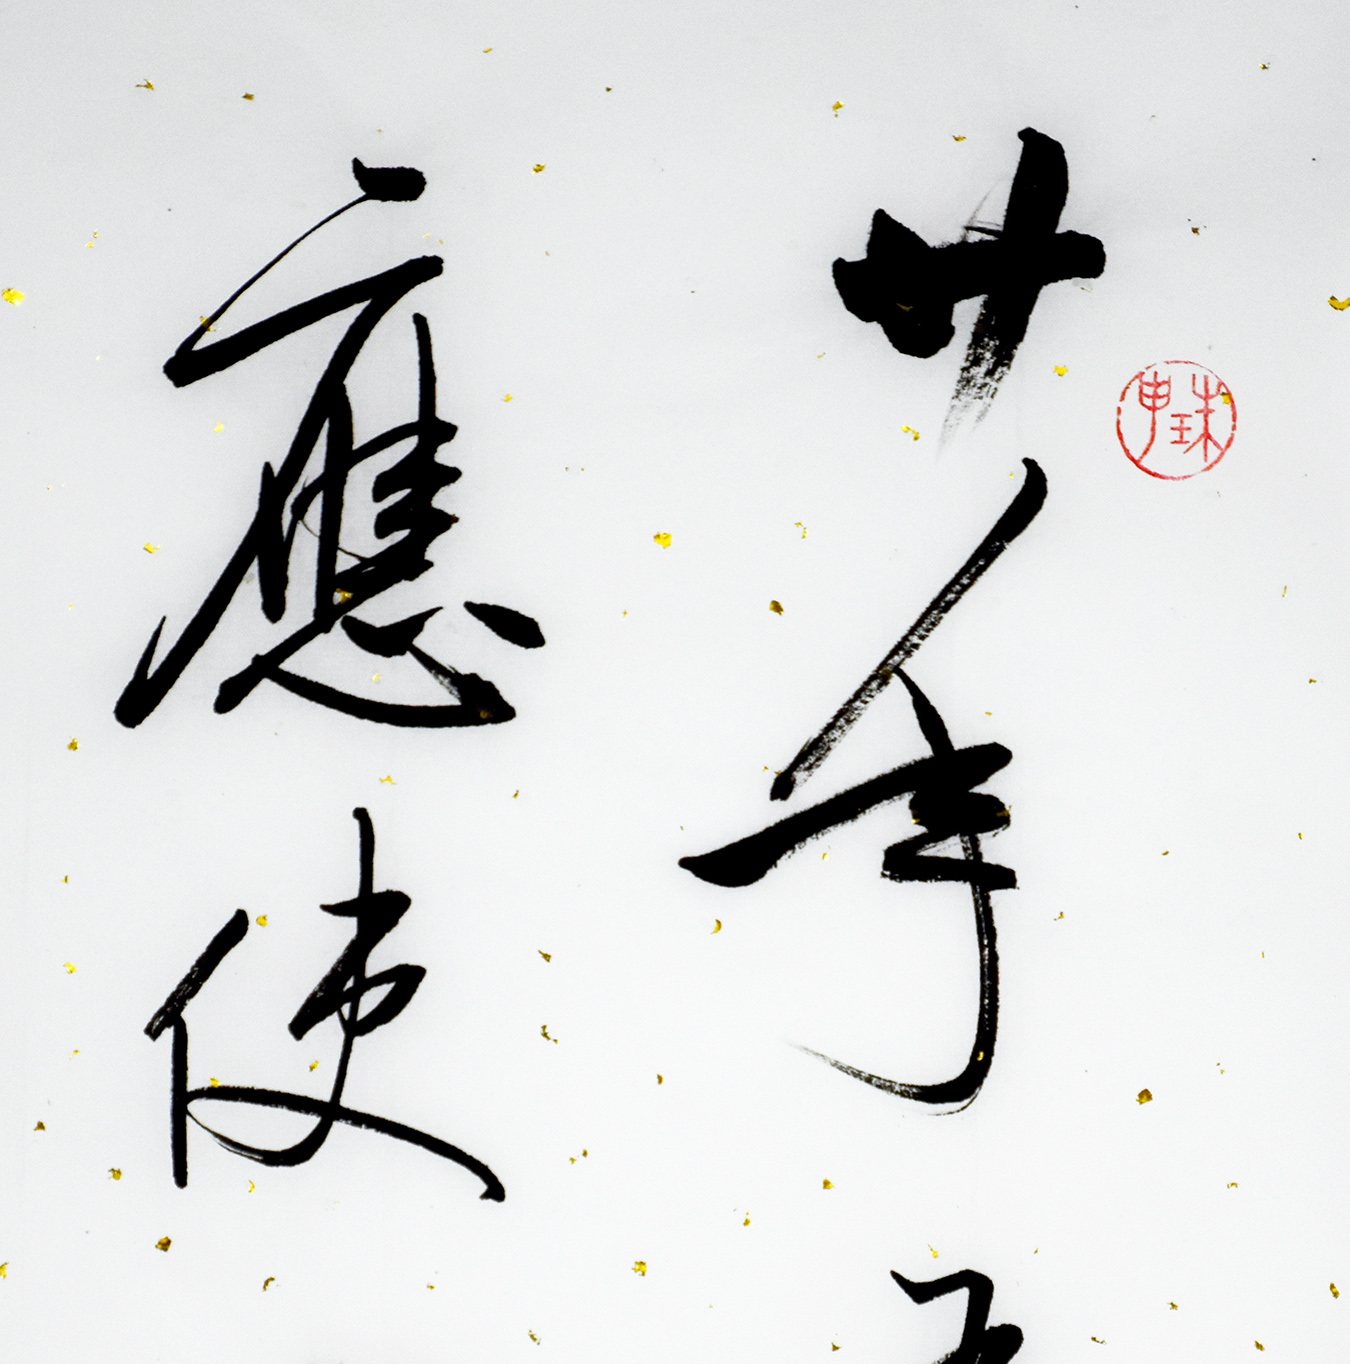 珠申
廿年
應使